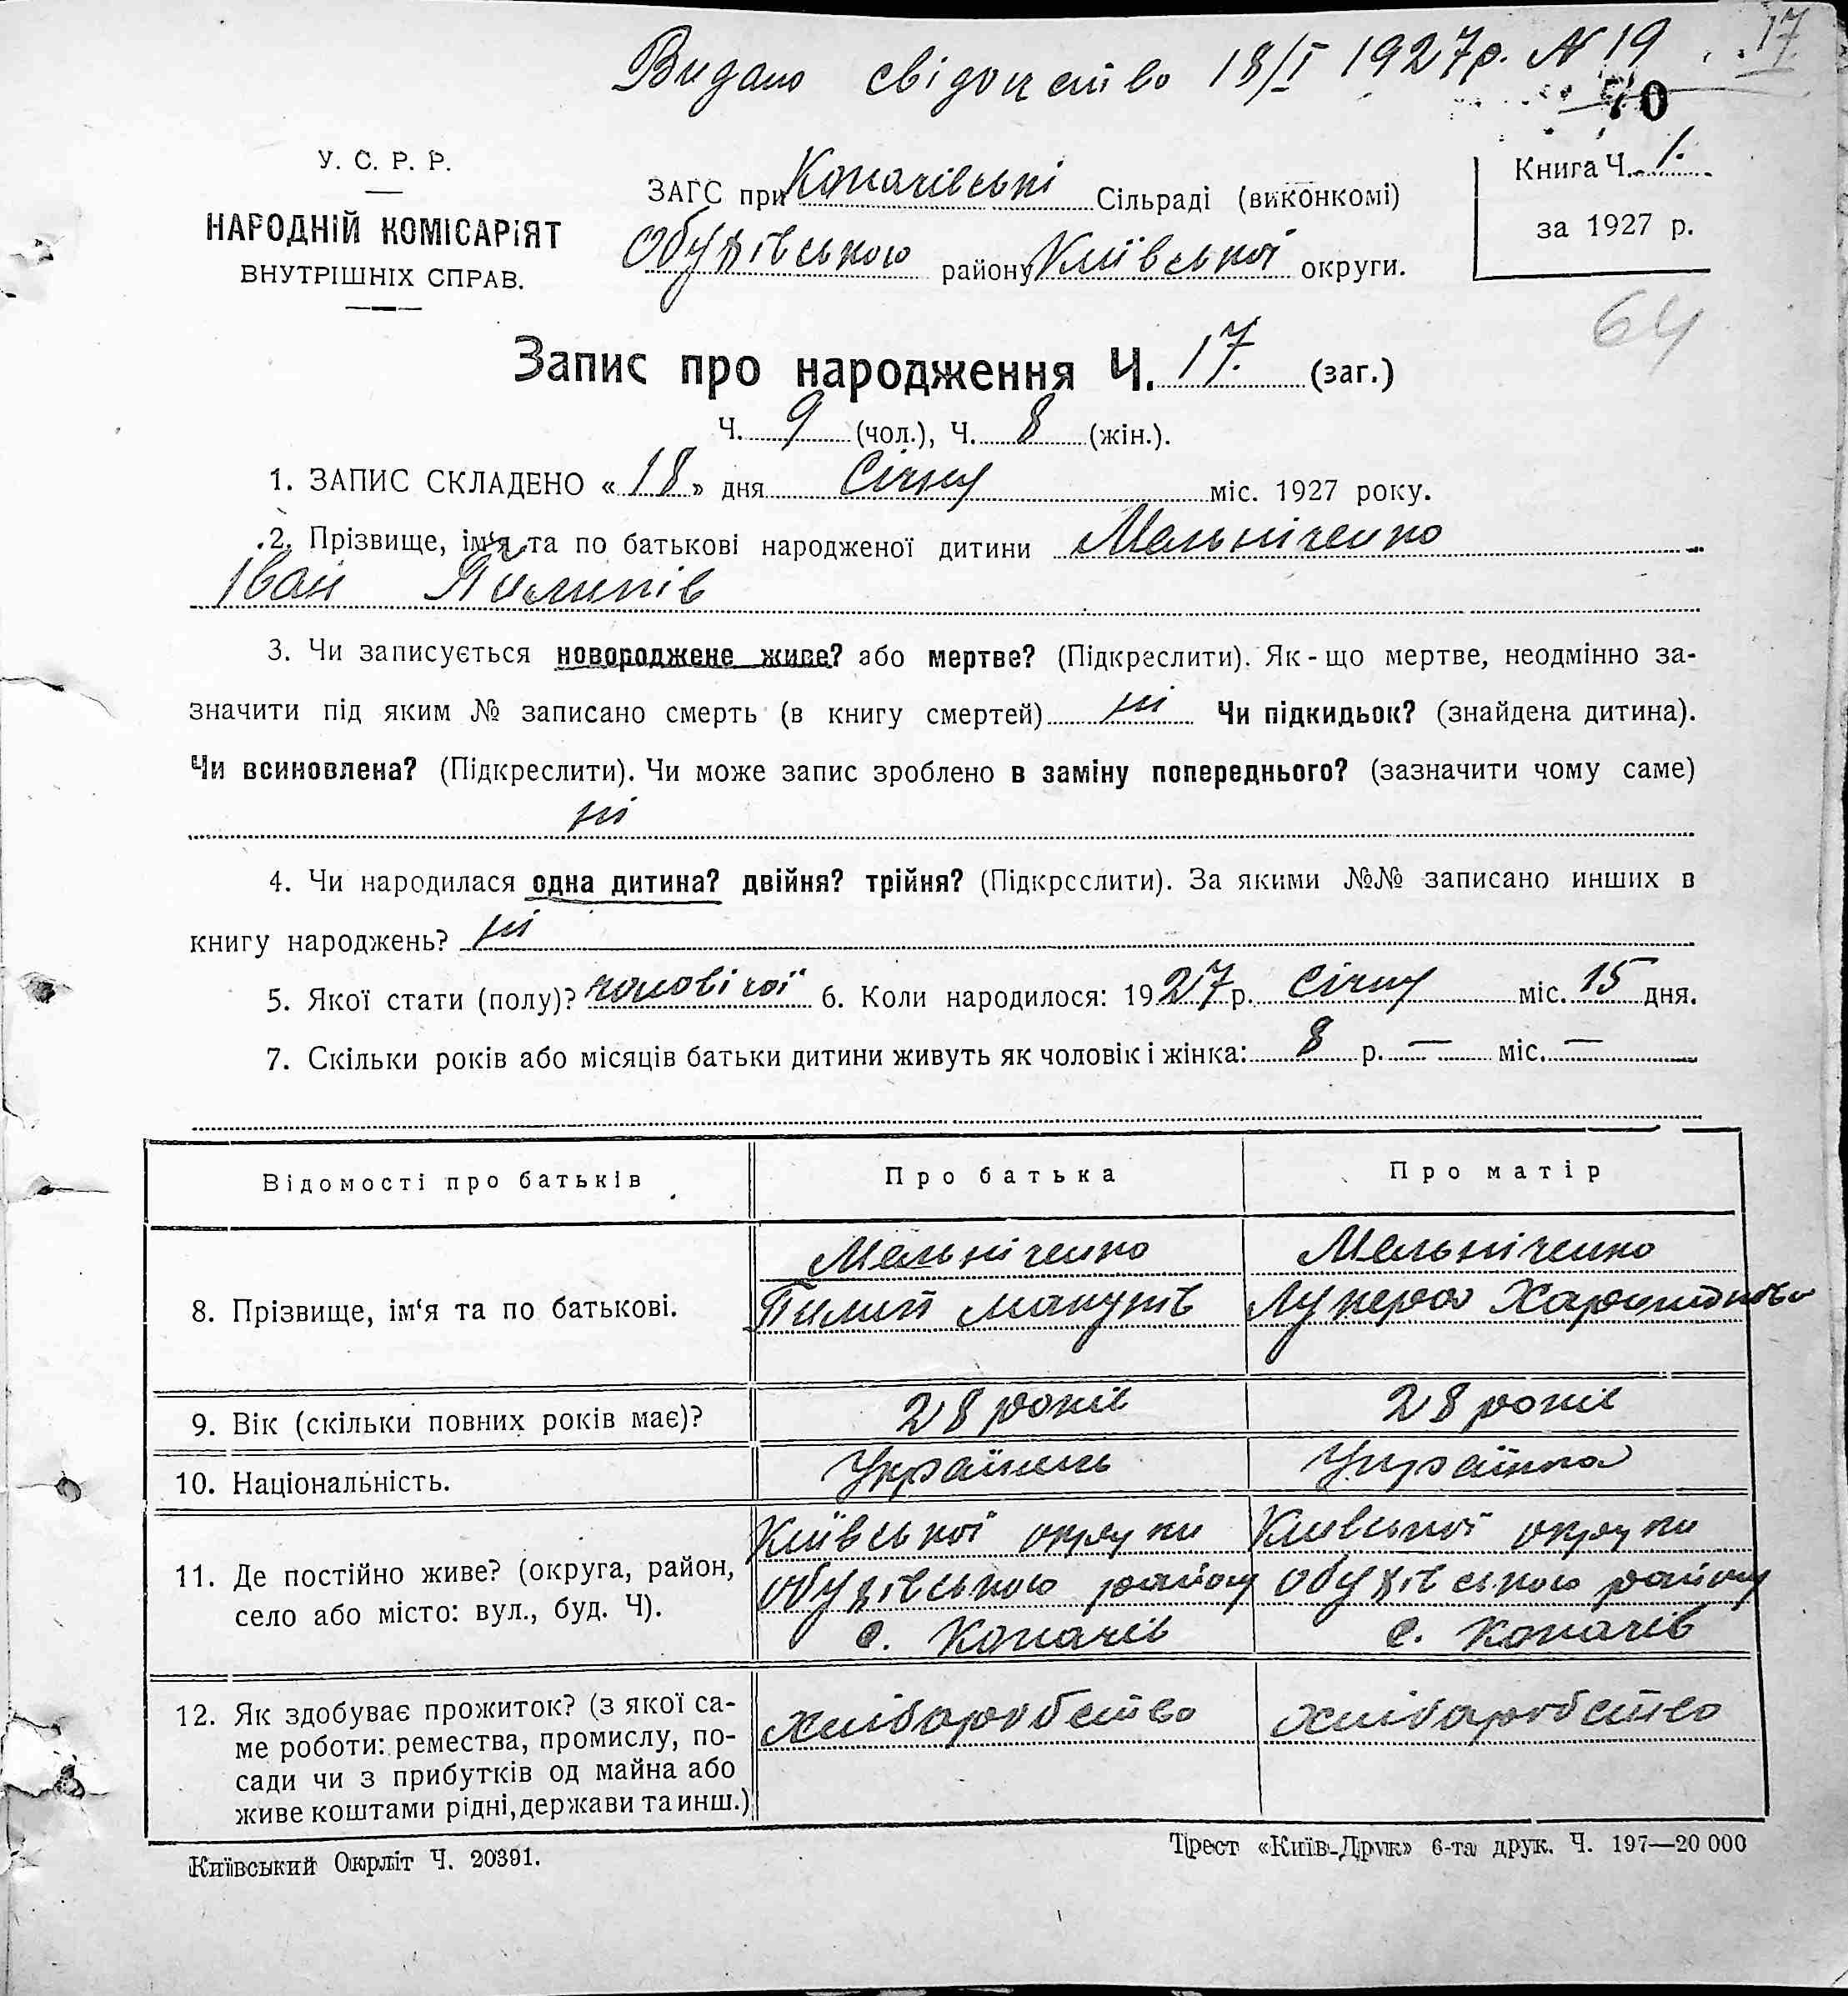 Видано свідоцтво 18/I 1927р. N 19
17
70
У. С. Р. Р.
НАРОДНІЙ КОМІСАРІЯТ
ВНУТРІШНІХ СПРАВ.
ЗАГС при Копачівські Сільраді (виконкомі)
Обухівського району Київської округи.
Книга Ч. 1.
за 1927 р.
64
Запис про народження Ч. 17. (заг.)
Ч. 9 (чол.), Ч. 8 (жін.).
1. ЗАПИС СКЛАДЕНО « 18 » дня Січня міс. 1927 року.
2. Прізвище, ім‘я та по батькові народженої дитини Мельніченко
Іван Пилипів
3. Чи записується новороджене живе? або мертве? (Підкреслити). Як-що мертве, неодмінно за-
значити під яким № записано смерть (в книгу смертей) ні Чи підкидьок? (знайдена дитина).
Чи всиновлена? (Підкреслити). Чи може запис зроблено в заміну попереднього? (зазначити чому саме)
ні
4. Чи народилася одна дитина? двійня? трійня? (Підкреслити). За якими №№ записано инших в
книгу народжень? ні
5. Якої стати (полу)? чоловічої 6. Коли народилося: 1927 р. Січня міс. 15 дня.
7. Скільки років або місяців батьки дитини живуть як чоловік і жінка: 8 р. — міс. —
Відомості про батьків
Про батька
Про матір
8. Прізвище, ім‘я та по батькові.
Мельніченко
Пилип
Мельніченко
Лукера
9. Вік (скільки повних років має)?
28 років
28 років
10. Національність.
Українець
Українка
11. Де постійно живе? (округа, район,
село або місто: вул., буд. Ч).
Київської округи
Обухівського району
с. Копачів
Київської округи
Обухівського району
с. Копачів
12. Як здобуває прожиток? (з якої са-
ме роботи: ремества, промислу, по-
сади чи з прибутків од майна або
живе коштами рідні, держави та инш.)
хліборобство
хліборобство
Київський Окрліт Ч. 20391.
Трест «Київ-Друк» 6-та друк. Ч. 197—20 000